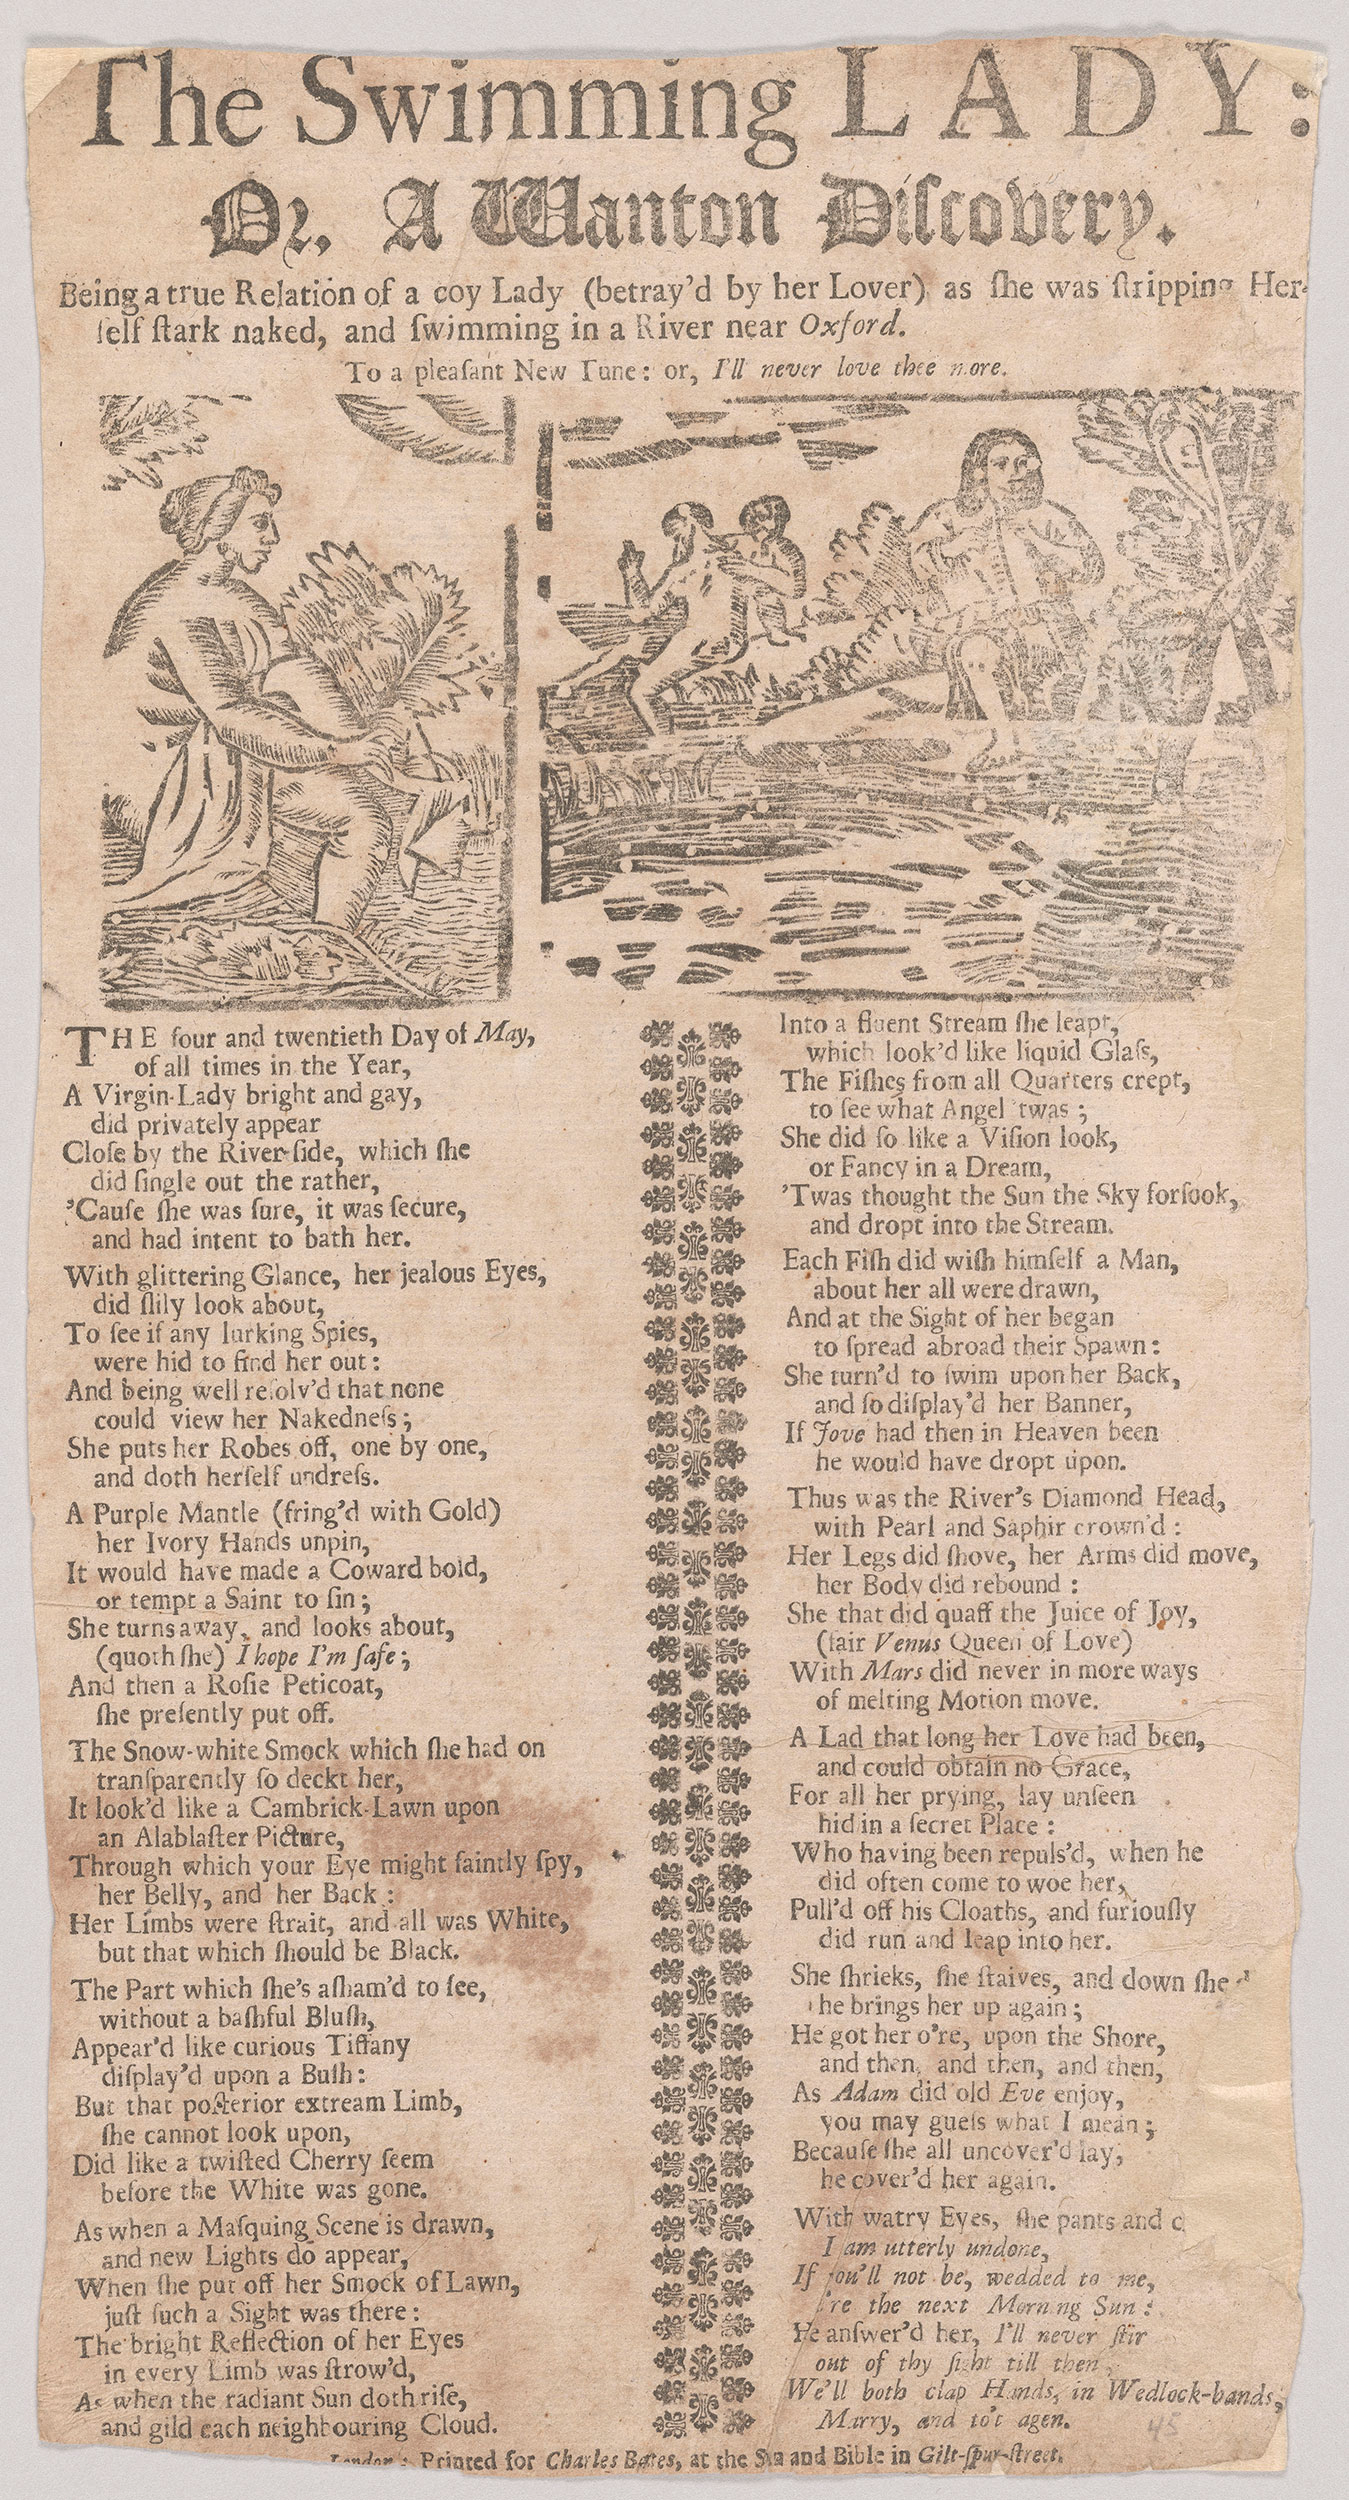 The Swimming LADY:
Or, A Wanton Diſcovery.
Being a true Relation of a coy Lady (betray'd by her Lover) as ſhe was ſtripping Her-
ſelf ſtark naked, and ſwimming in a River near Oxford.
To a pleaſant New Tune: or, I'll never love thee more.
THE four and twentieth Day of May,
of all times in the Year,
A Virgin-Lady bright and gay,
did privately appear
Cloſe by the River-ſide, which ſhe
did ſingle out the rather,
'Cauſe ſhe was ſure, it was ſecure,
and had intent to bath her.
With glittering Glance, her jealous Eyes,
did ſlily look about,
To ſee if any lurking Spies,
were hid to find her out:
And being well reſolv'd that none
could view her Nakedneſs;
She puts her Robes off, one by one,
and doth herſelf undreſs.
A Purple Mantle (fring'd with Gold)
her Ivory Hands unpin,
It would have made a Coward bold,
or tempt a Saint to ſin;
She turns away, and looks about,
(quoth ſhe) I hope I'm ſafe;
And then a Roſie Peticoat,
ſhe preſently put off.
The Snow-white Smock which ſhe had on
tranſparently ſo deckt her,
It look'd like a Cambrick-Lawn upon
an Alablaſter Picture,
Through which your Eye might faintly ſpy,
her Belly, and her Back:
Her Limbs were ſtrait, and all was White,
but that which ſhould be Black.
The Part which ſhe's aſham'd to ſee,
without a baſhful Bluſh,
Appear'd like curious Tiffany
diſplay'd upon a Buſh:
But that poſterior extream Limb,
ſhe cannot look upon,
Did like a twiſted Cherry ſeem
before the White was gone.
As when a Maſquing Scene is drawn,
and new Lights do appear,
When ſhe put off her Smock of Lawn,
juſt ſuch a Sight was there:
The bright Reflection of her Eyes
in every Limb was ſtrow'd,
As when the radiant Sun doth riſe,
and gild each neighbouring Cloud.
Into a fluent Stream ſhe leapt,
which look'd like liquid Glaſs,
The Fiſhes from all Quarters crept,
to ſee what Angel 'twas;
She did ſo like a Viſion look,
or Fancy in a Dream,
'Twas thought the Sun the Sky forſook,
and dropt into the Stream.
Each Fiſh did wiſh himſelf a Man,
about her all were drawn,
And at the Sight of her began
to ſpread abroad their Spawn:
She turn'd to ſwim upon her Back,
and ſo diſplay'd her Banner,
If Jove had then in Heaven been
he would have dropt upon.
Thus was the River's Diamond Head,
with Pearl and Saphir crown'd:
Her Legs did ſhove, her Arms did move,
her Body did rebound:
She that did quaff the Juice of Joy,
(fair Venus Queen of Love)
With Mars did never in more ways
of melting Motion move.
A Lad that long her Love had been,
and could obtain no Grace,
For all her prying, lay unſeen
hid in a ſecret Place:
Who having been repuls'd, when he
did often come to woe her,
Pull'd off his Cloaths, and furiouſly
did run and leap into her.
She ſhrieks, ſhe ſtaives, and down ſhe
he brings her up again;
He got her o're, upon the Shore,
and then, and then, and then,
As Adam did old Eve enjoy,
you may gueſs what I mean;
Becauſe ſhe all uncover'd lay,
he cover'd her again.
With watry Eyes, ſhe pants and
I am utterly undone,
If you'll not be, wedded to me,
're the next Morning Sun:
He anſwer'd her, I'll never ſtir
out of thy ſight till then,
We'll both clap Hands, in Wedlock-bands,
Marry, and to't agen.
45
London: Printed for Charles Bates, at the Sun and Bible in Gilt-ſpur-ſtreet.